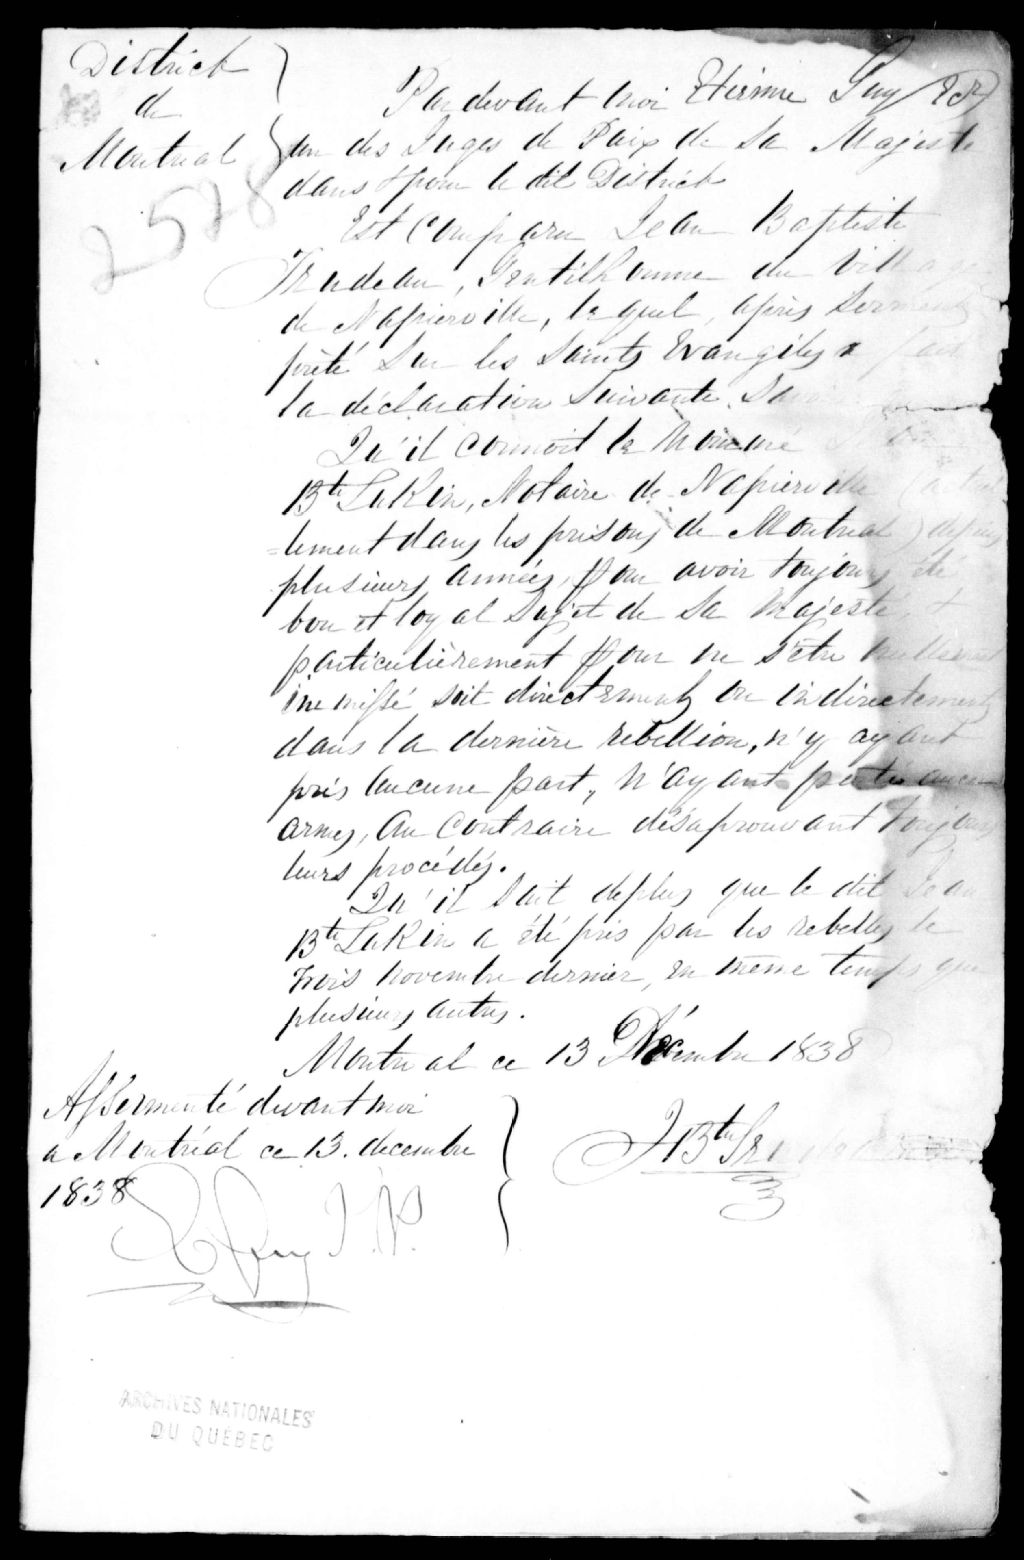 District
de
Montreal
2578
Pardevant moi Etienne Guy Esr
un des Juges de Paix de Sa Majesté
dans & pour le dit District
Est Comparu Jean Baptiste
Trudeau, Gentilhomme du Village
de Napierville, lequel, après Serment
prêté Sur les Saints Evangiles a fait
la déclaration Suivante. Savoir
Qu'il connoit le Nommé Jean
Bte Lukin, Notaire de Napierville (actuel
=lement dans les prisons de Montreal) depuis
plusieurs années, pour avoir toujours été
bon et loyal Sujet de Sa Majesté, &
particulièrement pour ne s'être nullement
immissé soit directement ou indirectement
dans la dernière rebellion, n'y ayant
pris aucune part, N'ayant porté aucune
armes, Au Contraire désaprouvant toujours
leurs procédés.
Qu'il Sait deplus que le dit Jean
Bte Lukin a été pris par les rebelles le
trois Novembre dernier, en même temps que
plusieurs autres.
Montreal ce 13 Décembre 1838
Assermenté devant moi
a Montréal ce 13. decembre
1838
J Bte Trudeau
E Guy J.P.
ARCHIVES NATIONALES
DU QUÉBEC